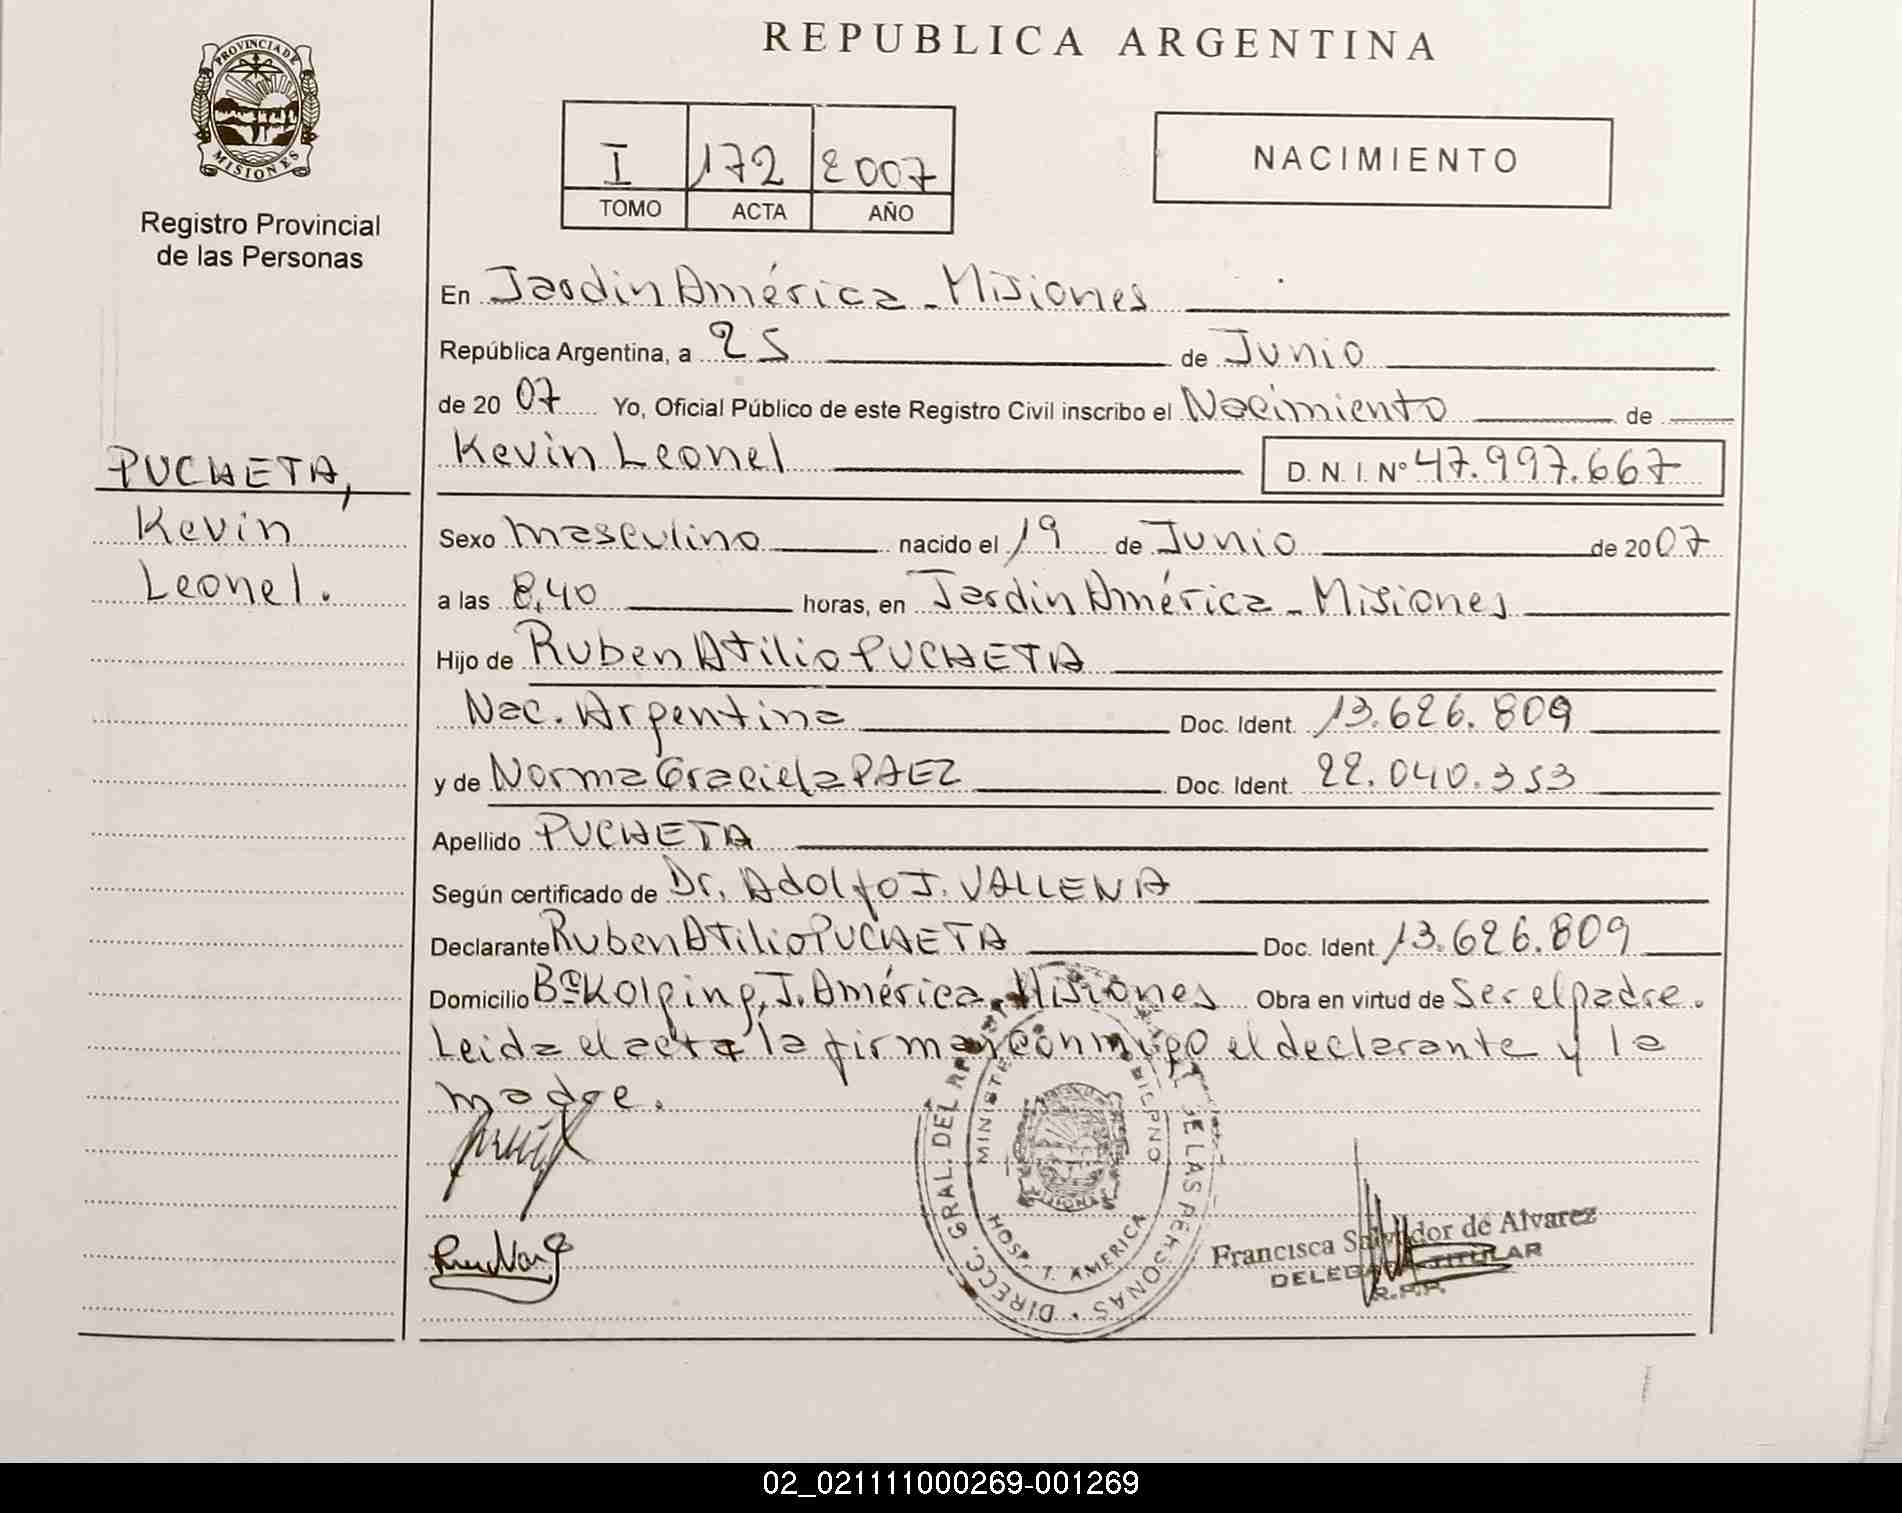 REPUBLICA ARGENTINA
PROVINCIA DE MISIONES
Registro Provincial
de las Personas
I 172 2007
TOMO ACTA AÑO
NACIMIENTO
En Jardin América - Misiones
República Argentina, a 25 de Junio
de 2007 Yo, Oficial Público de este Registro Civil inscribo el Nacimiento de
Kevin Leonel D. N. I. Nº 47.997.667
PUCHETA,
Kevin
Leonel.
Sexo masculino nacido el 19 de Junio de 2007
a las 8,40 horas, en Jardin América - Misiones
Hijo de Ruben Atilio PUCHETA
Nac. Argentina Doc. Ident. 13.626.809
y de Norma Graciela PAEZ Doc. Ident. 22.040.353
Apellido PUCHETA
Según certificado de Dr. Adolfo J. VALLENA
Declarante Ruben Atilio PUCHETA Doc. Ident. 13.626.809
Domicilio Bº Kolping, J. América, Misiones Obra en virtud de Ser el padre.
Leida el acta la firman conmigo el declarante y la
madre.
DIRECC. GRAL. DEL DE LAS PERSONAS
HOSP. J. AMERICA
MISIONES
Francisca Salvador de Alvarez
DELEGADA TITULAR
R.P.P.
02_021111000269-001269